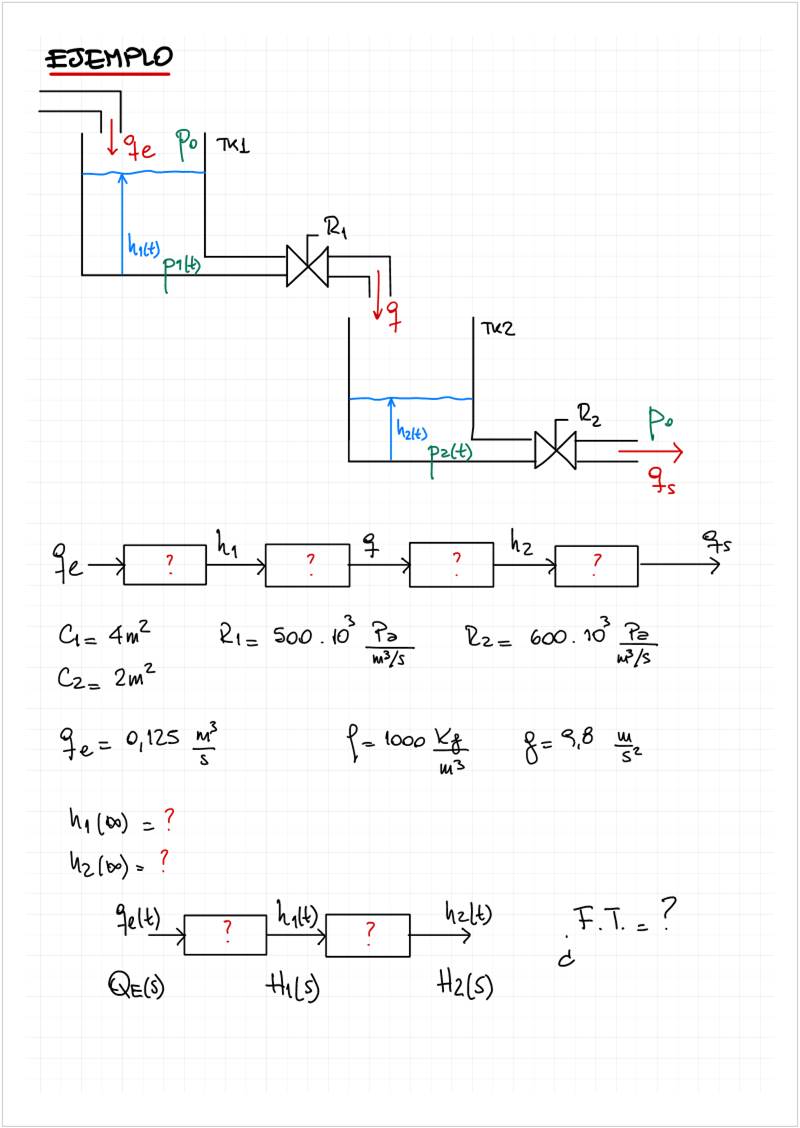 EJEMPLO
qe
p0
TK1
h1(t)
p1(t)
R1
q
TK2
h2(t)
p2(t)
R2
p0
qs
qe ? h1 ? q ? h2 ? qs
C1 = 4m² R1 = 500 . 10³ Pa/m³/s R2 = 600 . 10³ Pa/m³/s
C2 = 2m²
qe = 0,125 m³/s ρ = 1000 Kg/m³ g = 9,8 m/s²
h1(∞) = ?
h2(∞) = ?
qe(t) ? h1(t) ? h2(t) ¿F.T. = ?
QE(s) H1(s) H2(s)